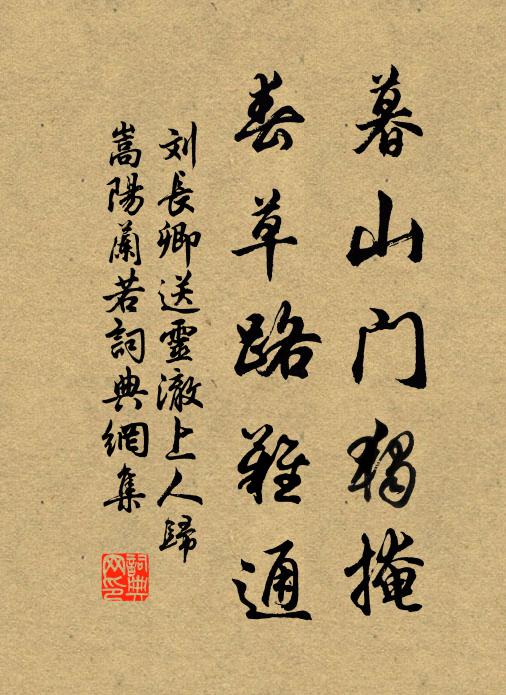 暮山门独掩
春草路難通
刘長卿送靈澈上人歸
嵩陽蘭若詞典網集
詞典
网印